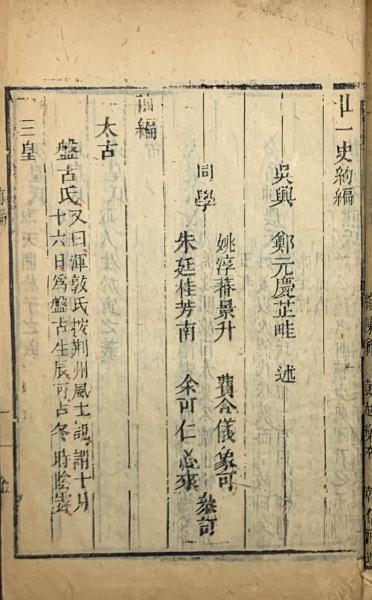 廿一史約編
吳興 鄭元慶芷畦 述
姚淳蕃景升 費金儀象可
同學 叅訂
朱廷桂芳南 余可仁必來
前編
太古
盤古氏 又曰渾敦氏按荆州風土記謂十月
十六日爲盤古生辰可占冬時陰
三皇